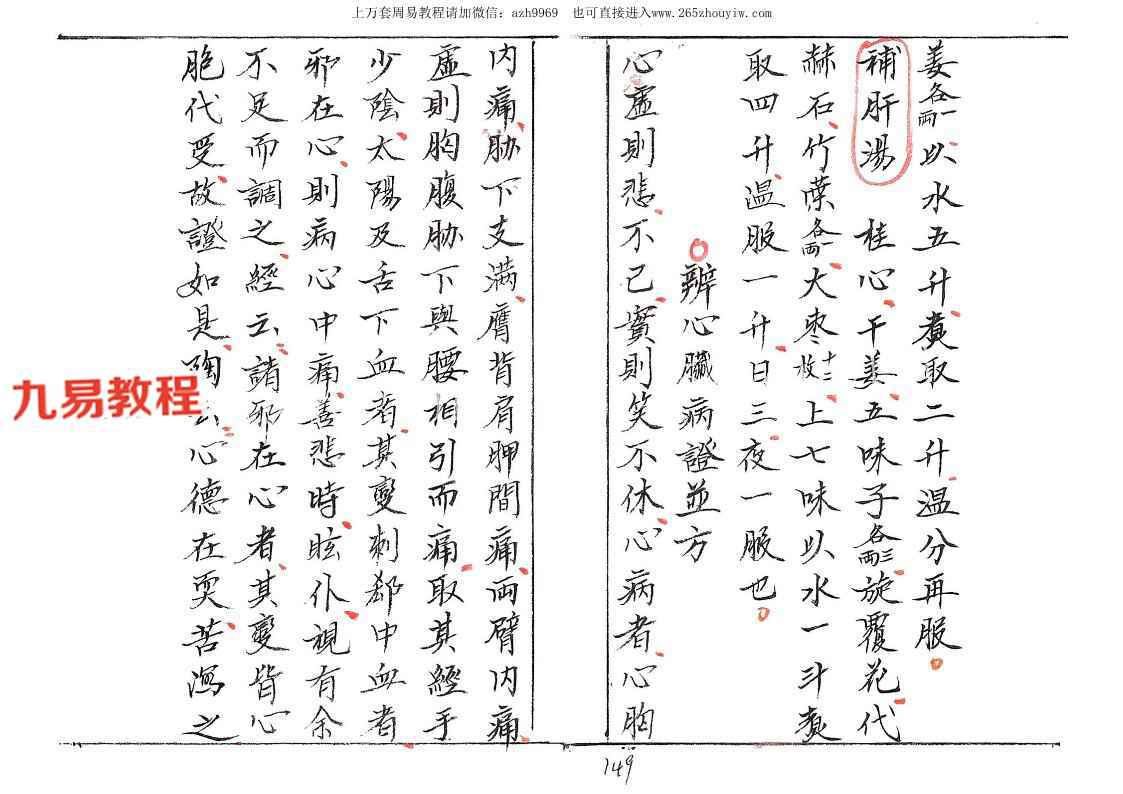 上万套周易教程请加微信：azh9969 也可直接进入www.265zhouyiw.com
姜各一兩、以水五升、煮取二升、温分再服。
補肝湯 桂心、干姜、五味子各三兩、旋覆花、代
赫石、竹葉各一兩、大枣十二枚、上七味、以水一斗、煑
取四升、温服一升、日三、夜一服也。
○辨心臟病證並方
心虛則悲、不已、實則笑不休、心病者、心胸
内痛、胁下支满、膺背肩胛間痛、兩臂内痛、
虛則胸腹胁下與腰相引而痛、取其經手
少陰、太陽及舌下血者、其變刺郄中血者、
邪在心、則病心中痛、善悲、時眩仆、視有余
不足而調之、經云、諸邪在心者、其變皆心
胞代受、故證如是、陶云、心德在耎、苦瀉之
九易教程
149